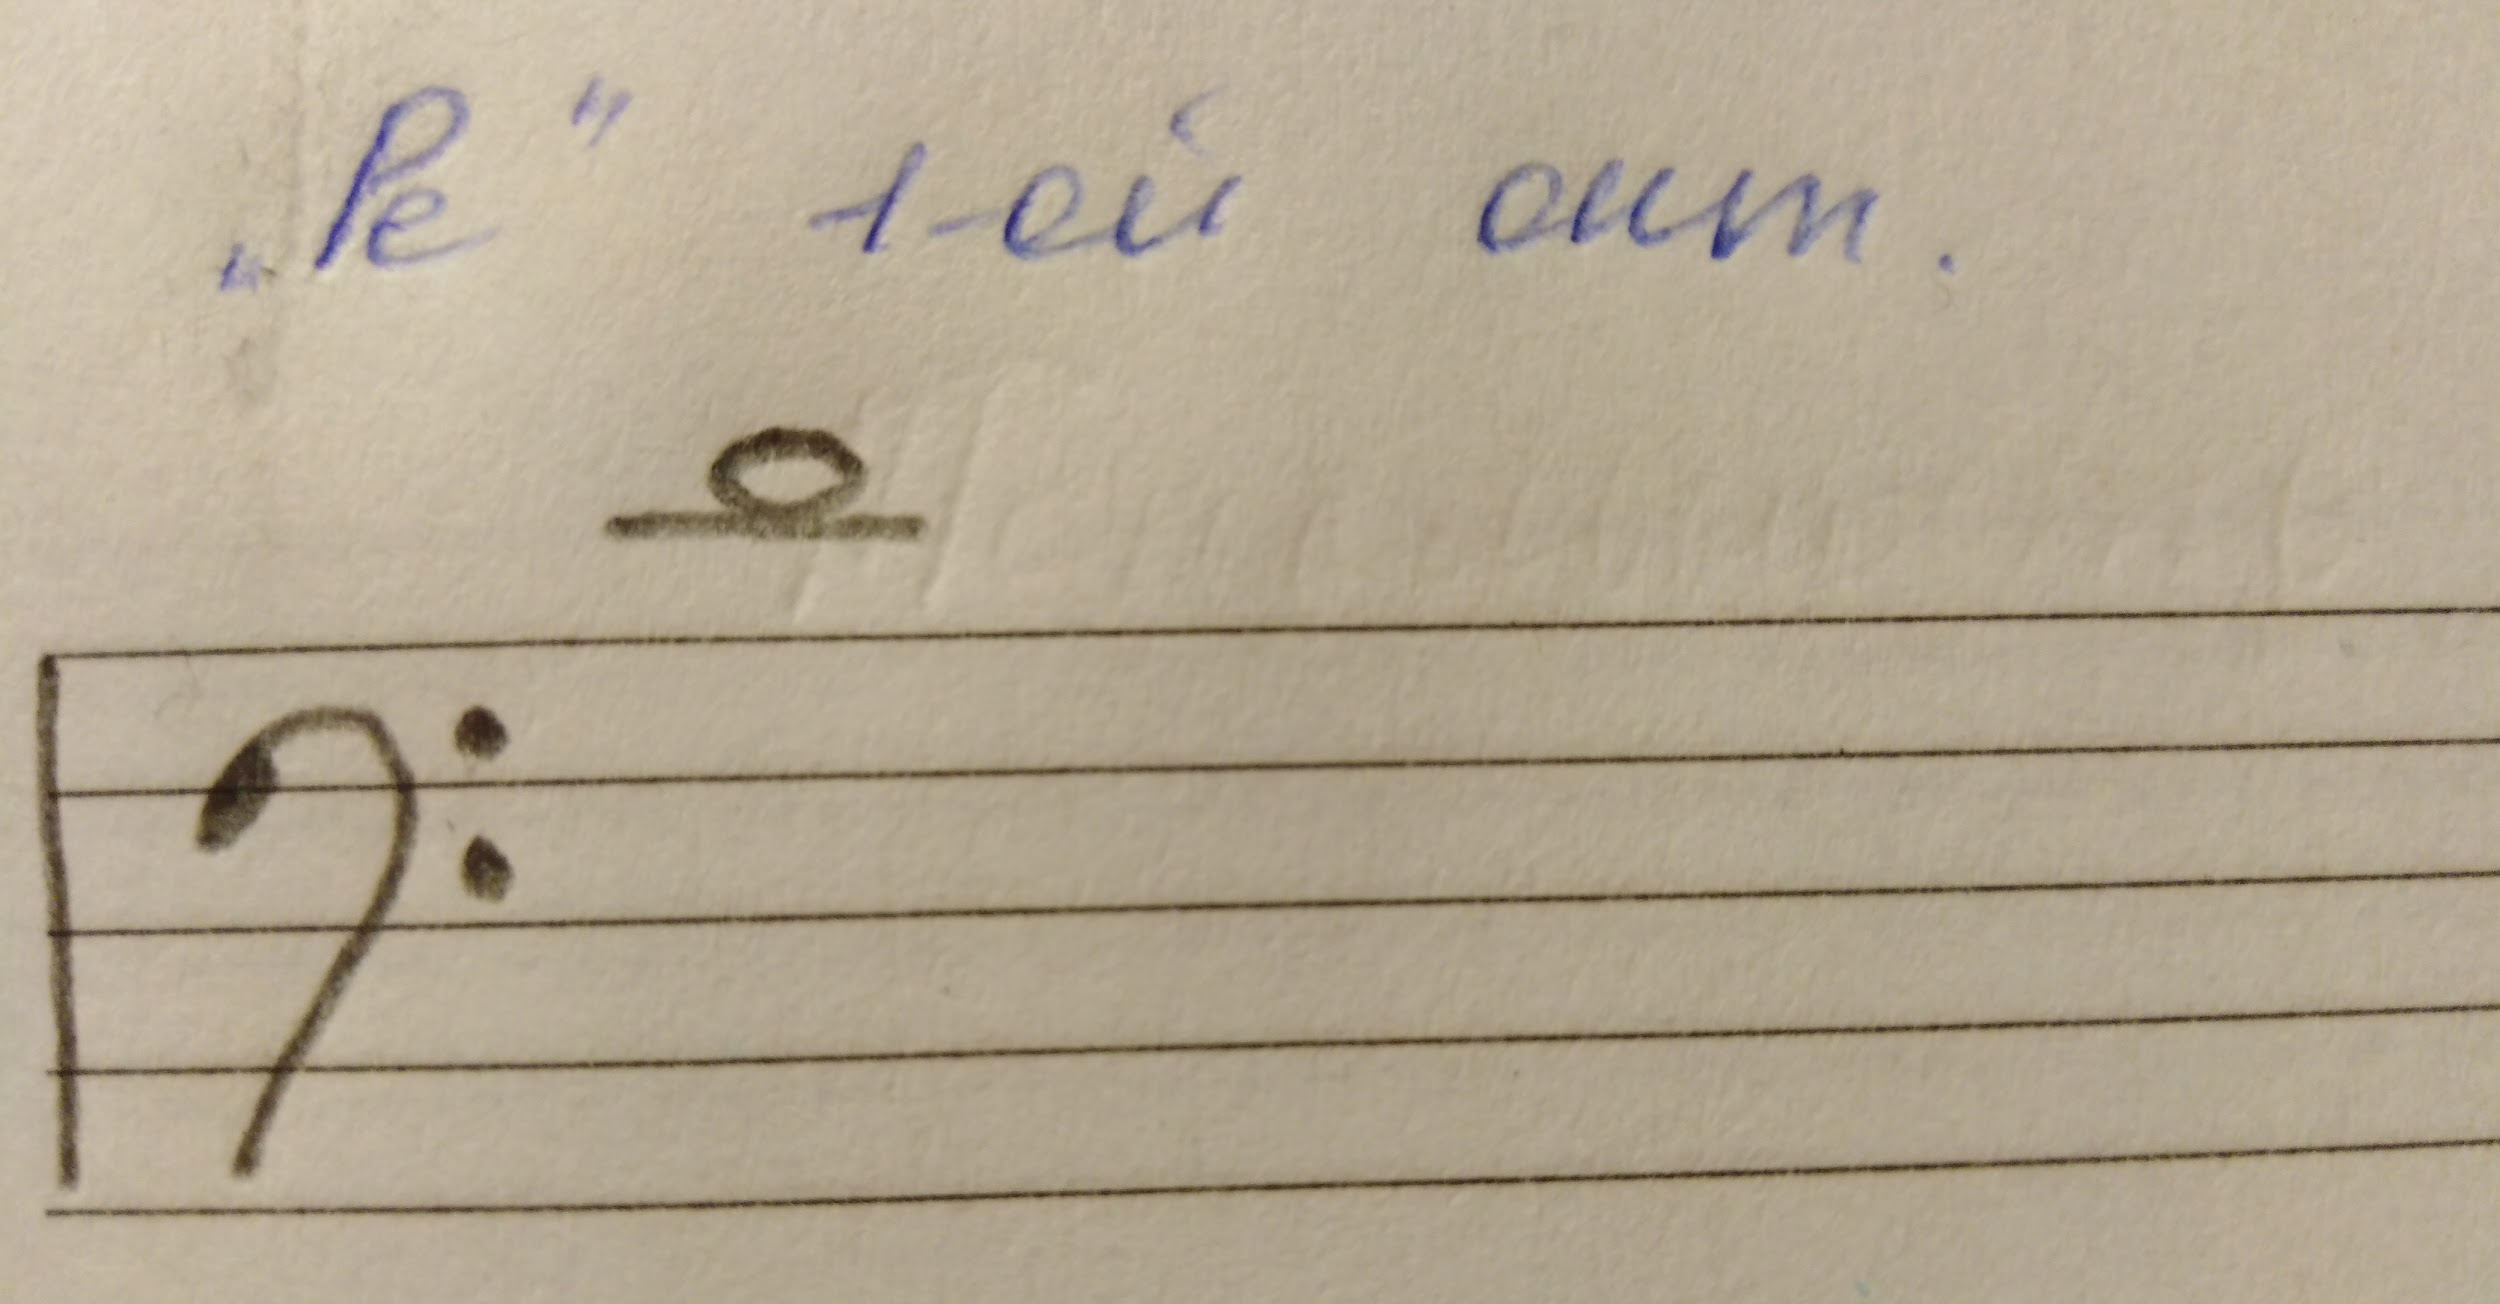 „Ре" 1-ой окт.